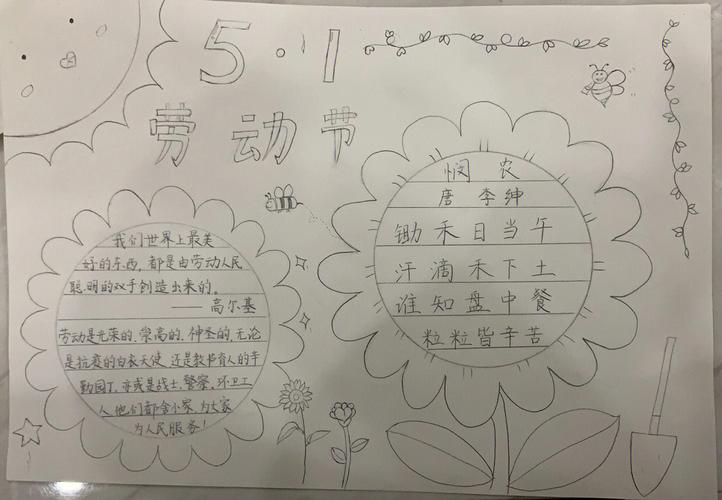 5·1
劳动节
我们世界上最美
好的东西,都是由劳动人民
聪明的双手创造出来的。
——高尔基
劳动是光荣的、崇高的、神圣的、无论
是抗疫的白衣天使,还是教书育人的辛
勤园丁,亦或是战士、警察、环卫工
人,他们都舍小家,为大家
为人民服务!
悯农
唐 李绅
锄禾日当午
汗滴禾下土
谁知盘中餐
粒粒皆辛苦